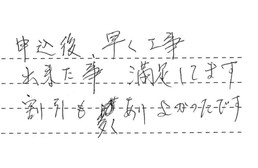 申込後、早く工事
出来た事 満足してます
割引も 数 あり よかったです